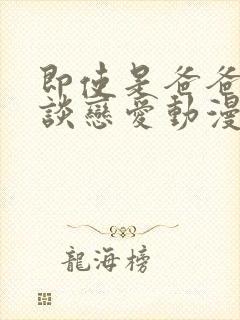 即使是爸爸
談戀愛動漫
龍海榜